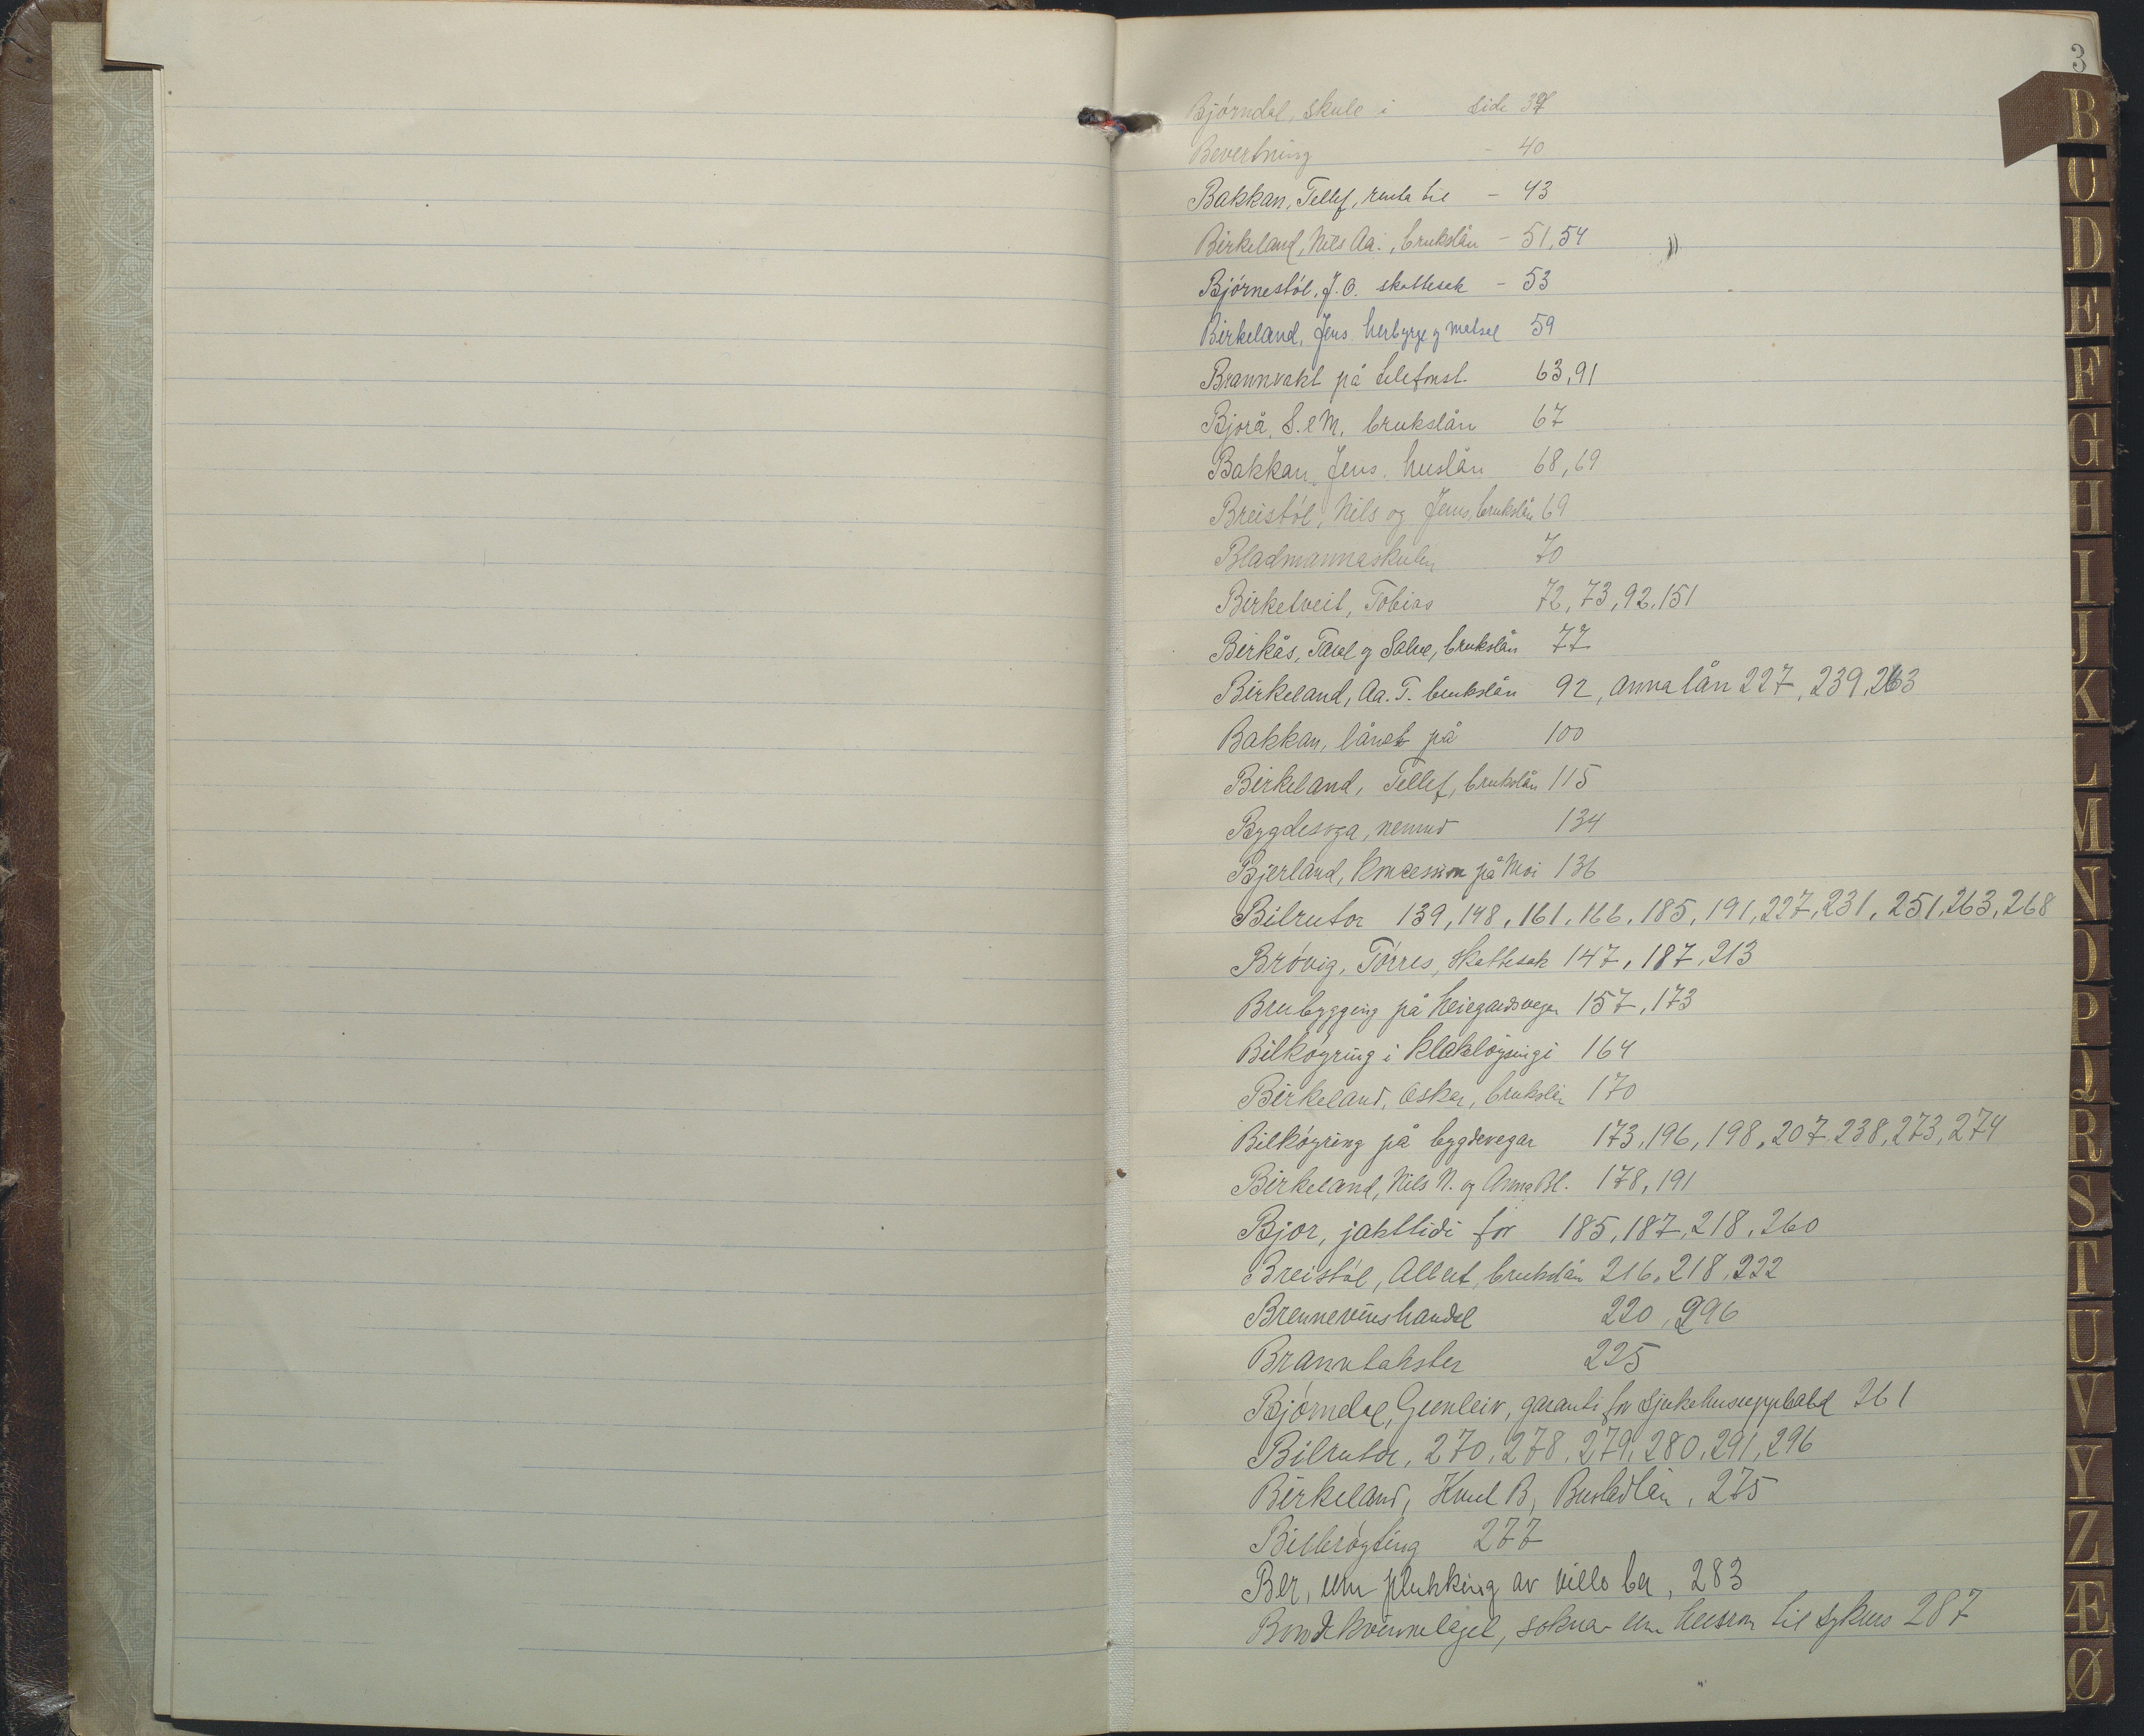 3
Bjórndal, skule i side 39
Bevertning - 40
Bakkan, Tellef, renta til - 43
Birkeland, Nils Aa., brukslån - 51, 54
Bjórnestól, J. O. skattesak - 53
Birkeland, Jens herbyrge og matsal 59
Brannvakt på telefonst. 63, 91
Bjorå, S. e M. brukslån 67
Bakkan, Jens. huslån 68, 69
Breistól, Nils og Jens, brukslån 69
Bladmannaskulen 70
Birketveit, Tobias 72, 73, 92, 151
Birkås, Taral og Salve, brukslån 77
Birkeland, Aa. T. brukslån 92, Anna lån 227, 239, 263
Bakkan, lånet på 100
Birkeland, Tellef, brukslån 115
Bygdesoga, nemnd 134
Bjerland, Koncession på Moi 136
Bilrutor 139, 148, 161, 166, 185, 191, 227, 231, 251, 263, 268
Bróvig, Tórres, skattesak 147, 187, 213
Brubygging på Heiegardsvegen 157, 173
Bilkóyring i kleklóysingi 164
Birkeland, Oskar, brukslån 170
Bilkóyring på bygdevegar 173, 196, 198, 207, 238, 273, 274
Birkeland, Nils N. og Anna Bl. 178, 191
Bjor, jakttidi for 185, 187, 218, 260
Breistól, Albert, brukslån 216, 218, 222
Brennevinshandel 220, 296
Branntakster 225
Bjórndal, Gunleiv, garanti for sjukehusupphald 261
Bilrutor, 270, 278, 279, 280, 291, 296
Birkeland, B, Bustadlån, 275
Bilbróyting 277
Ber, um plukking av ville ber, 283
Bondekvinnelaget, soknar um husrom til sykurs 287
B
C
D
E
F
G
H
I
J
K
L
M
N
O
P
Q
R
S
T
U
V
Y
Z
Æ
Ø